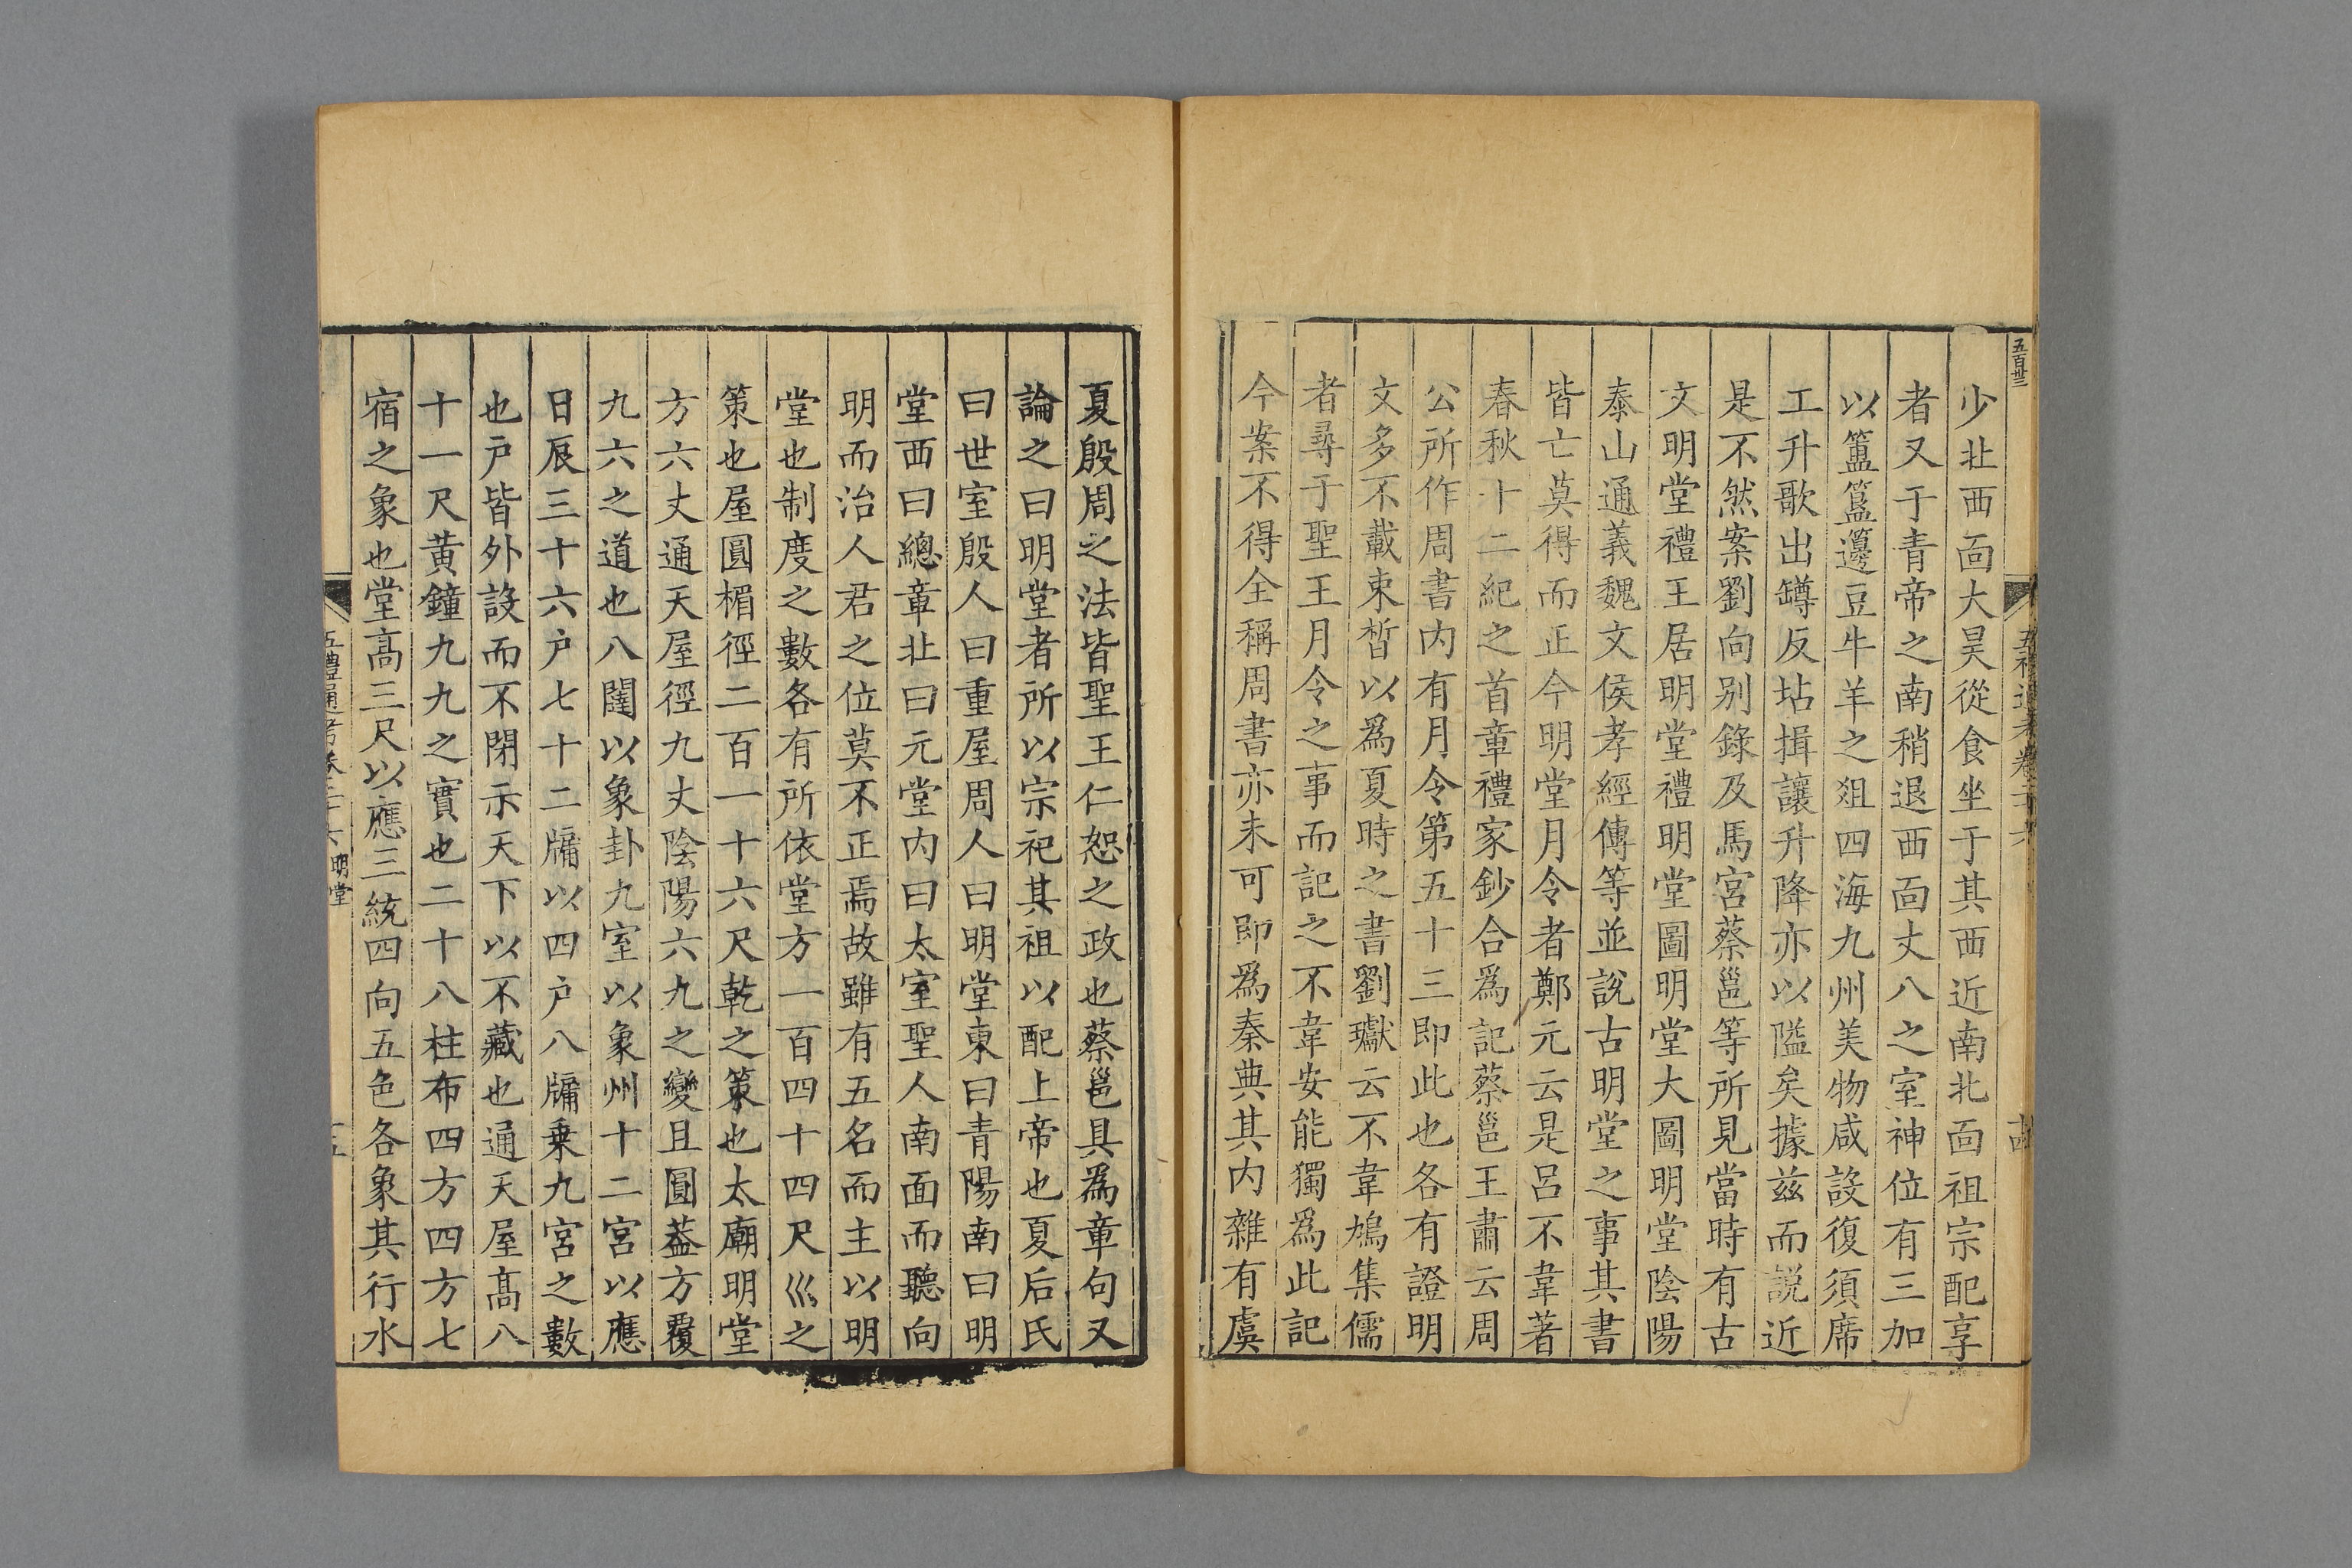 五百卅三
五禮通考卷二十六
十四
少北西面大昊從食坐于其西近南北面祖宗配享
者又于青帝之南稍退西面丈八之室神位有三加
以簠簋籩豆牛羊之俎四海九州美物咸設復須席
工升歌出罇反坫揖讓升降亦以隘矣據兹而說近
是不然案劉向別錄及馬宮蔡邕等所見當時有古
文明堂禮王居明堂禮明堂圖明堂大圖明堂陰陽
泰山通義魏文侯孝經傳等並說古明堂之事其書
皆亡莫得而正今明堂月令者鄭元云是呂不韋著
春秋十二紀之首章禮家鈔合爲記蔡邕王肅云周
公所作周書内有月令第五十三即此也各有證明
文多不載束晳以爲夏時之書劉瓛云不韋鳩集儒
者尋于聖王月令之事而記之不韋安能獨爲此記
今案不得全稱周書亦未可即爲秦典其内雜有虞
夏殷周之法皆聖王仁恕之政也蔡邕具爲章句又
論之曰明堂者所以宗祀其祖以配上帝也夏后氏
曰世室殷人曰重屋周人曰明堂東曰青陽南曰明
堂西曰總章北曰元堂内曰太室聖人南面而聽向
明而治人君之位莫不正焉故雖有五名而主以明
堂也制度之數各有所依堂方一百四十四尺巛之
策也屋圓楣徑二百一十六尺乾之策也太廟明堂
方六丈通天屋徑九丈陰陽六九之變且圓葢方覆
九六之道也八闥以象卦九室以象州十二宮以應
日辰三十六户七十二牖以四户八牖乗九宮之數
也户皆外設而不閉示天下以不藏也通天屋髙八
十一尺黄鐘九九之實也二十八柱布四方四方七
宿之象也堂髙三尺以應三統四向五色各象其行水
五禮通考卷二十六 明堂
十五